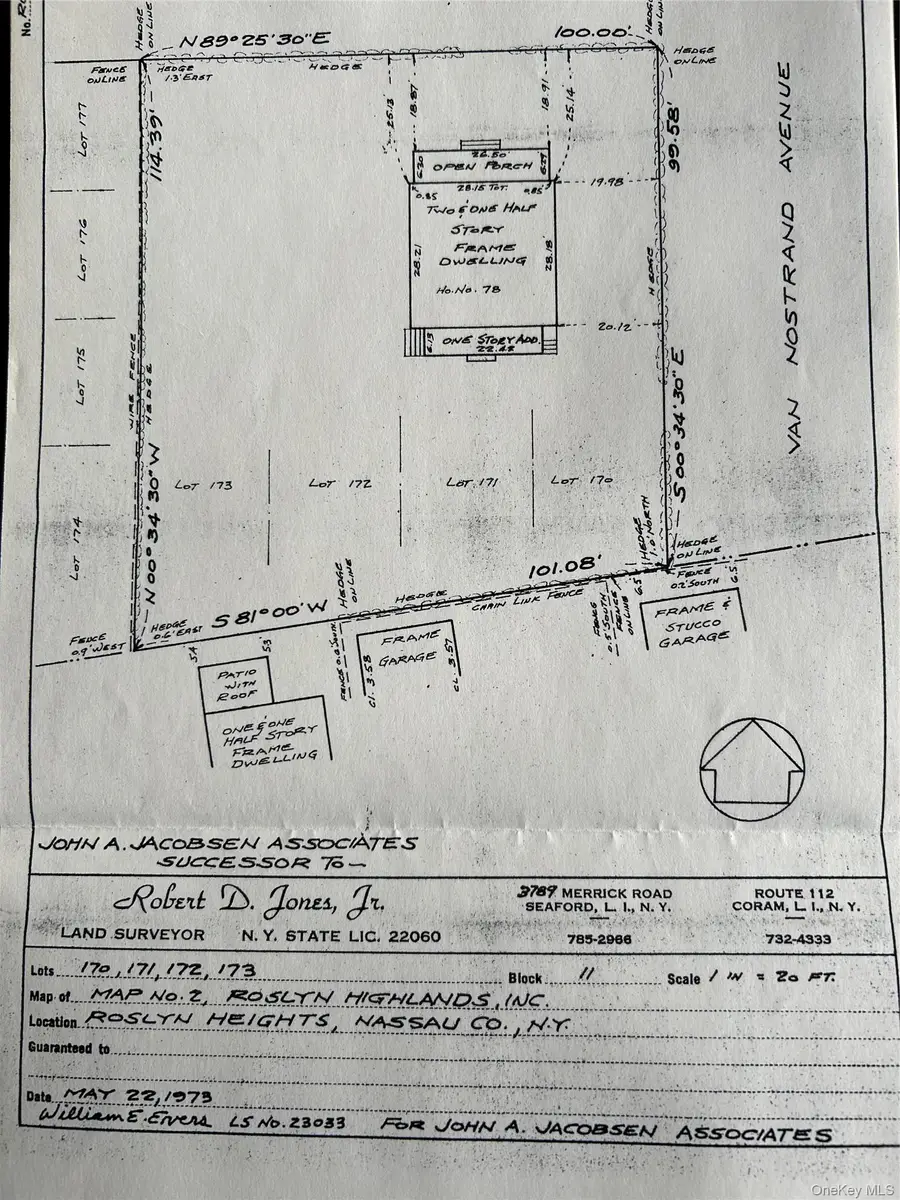 No. R
HEDGE
ON LINE
N 89° 25' 30" E
100.00'
HEDGE
ON LINE
HEDGE
ON LINE
FENCE
ON LINE
HEDGE
1.3' EAST
HEDGE
LOT 177
114.39'
25.13
18.87
18.91
25.14
99.58'
VAN NOSTRAND AVENUE
26.50
6.30
OPEN PORCH
6.27
28.15 TOT.
0.85
0.85
19.98
LOT 176
TWO & ONE HALF
STORY
FRAME
DWELLING
28.21
28.18
HO. NO. 78
HEDGE
20.12
6.13
ONE STORY ADD.
LOT 175
WIRE FENCE
HEDGE
LOT 173
LOT 172
LOT 171
LOT 170
S 00° 34' 30" E
N 00° 34' 30" W
LOT 174
HEDGE
1.0' NORTH
HEDGE
ON LINE
FENCE
0.2' SOUTH
101.08'
HEDGE
ON LINE
HEDGE
CHAIN LINK FENCE
S 81° 00' W
HEDGE
0.6' EAST
FENCE
0.9' WEST
5.4
5.3
FENCE 0.8' SOUTH
FENCE
0.5' SOUTH
FENCE
ON LINE
6.5
6.5
FRAME
GARAGE
Cl. 3.58
CL. 3.57
FRAME &
STUCCO
GARAGE
PATIO
WITH
ROOF
ONE & ONE
HALF STORY
FRAME
DWELLING
JOHN A. JACOBSEN ASSOCIATES
SUCCESSOR TO —
Robert D. Jones, Jr.
LAND SURVEYOR N. Y. STATE LIC. 22060
3789 MERRICK ROAD
SEAFORD, L. I., N. Y.
785-2966
ROUTE 112
CORAM, L. I., N. Y.
732-4333
Lots 170, 171, 172, 173 Block 11 Scale 1 IN = 20 FT.
Map of MAP NO. 2, ROSLYN HIGHLANDS, INC.
Location ROSLYN HEIGHTS, NASSAU CO., N.Y.
Guaranteed to
Date MAY 22, 1973
William E. Ervers LS No. 23033 FOR JOHN A. JACOBSEN ASSOCIATES
OneKey MLS